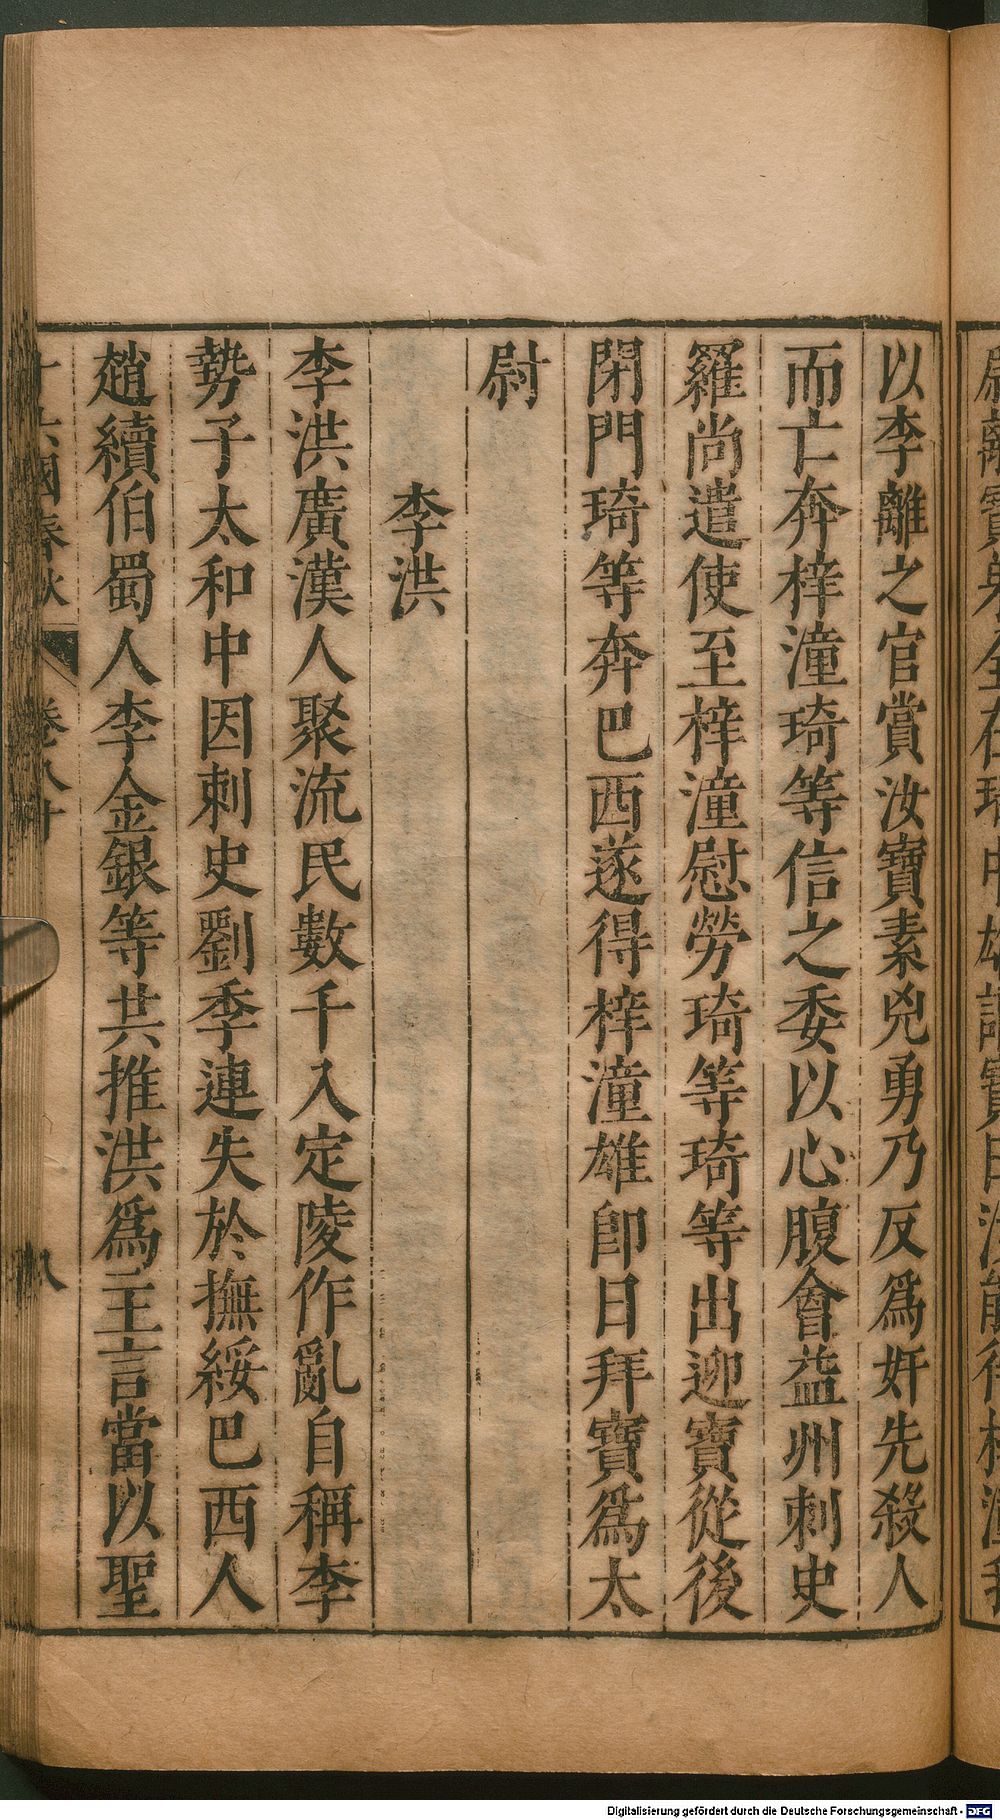 以李離之官賞汝寶素兇勇乃反爲奸先殺人
而亡奔梓潼琦等信之委以心腹會益州刺史
羅尚遣使至梓潼慰勞琦等琦等出迎寶從後
閉門琦等奔巴西遂得梓潼雄卽日拜寶爲太
尉
李洪
李洪廣漢人聚流民數千入定陵作亂自稱李
勢子太和中因刺史劉季連失於撫綏巴西人
趙續伯蜀人李金銀等共推洪爲主言當以聖
十六國春秋 卷八十 八
Digitalisierung gefördert durch die Deutsche Forschungsgemeinschaft - DFG